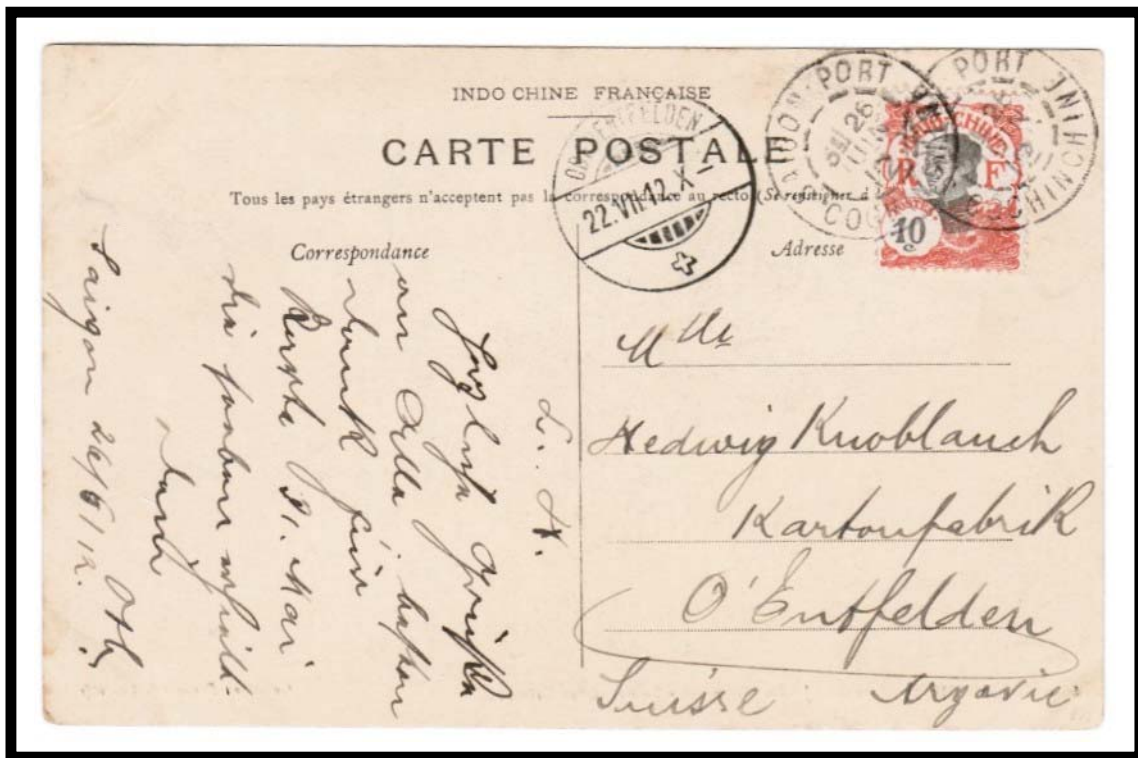 INDO CHINE FRANÇAISE
CARTE POSTALE
Tous les pays étrangers n'acceptent pas la correspondance au recto (Se renseigner à la
Correspondance
Adresse
OBERENTFELDEN
22.VII.12.X-
SAIGON PORT
26
JUIN
COCHINCHINE
PORT
COCHINCHINE
INDO-CHINE
R F
10
c
L. H.
Herzliche Grüsse
an Alle. besten
Dank für
Karte 31. Mai
die soeben erhielt.
Saigon 26/6/12.
Mlle
Hedwig Knoblauch
Kartonfabrik
O'Entfelden
Suisse Argovie